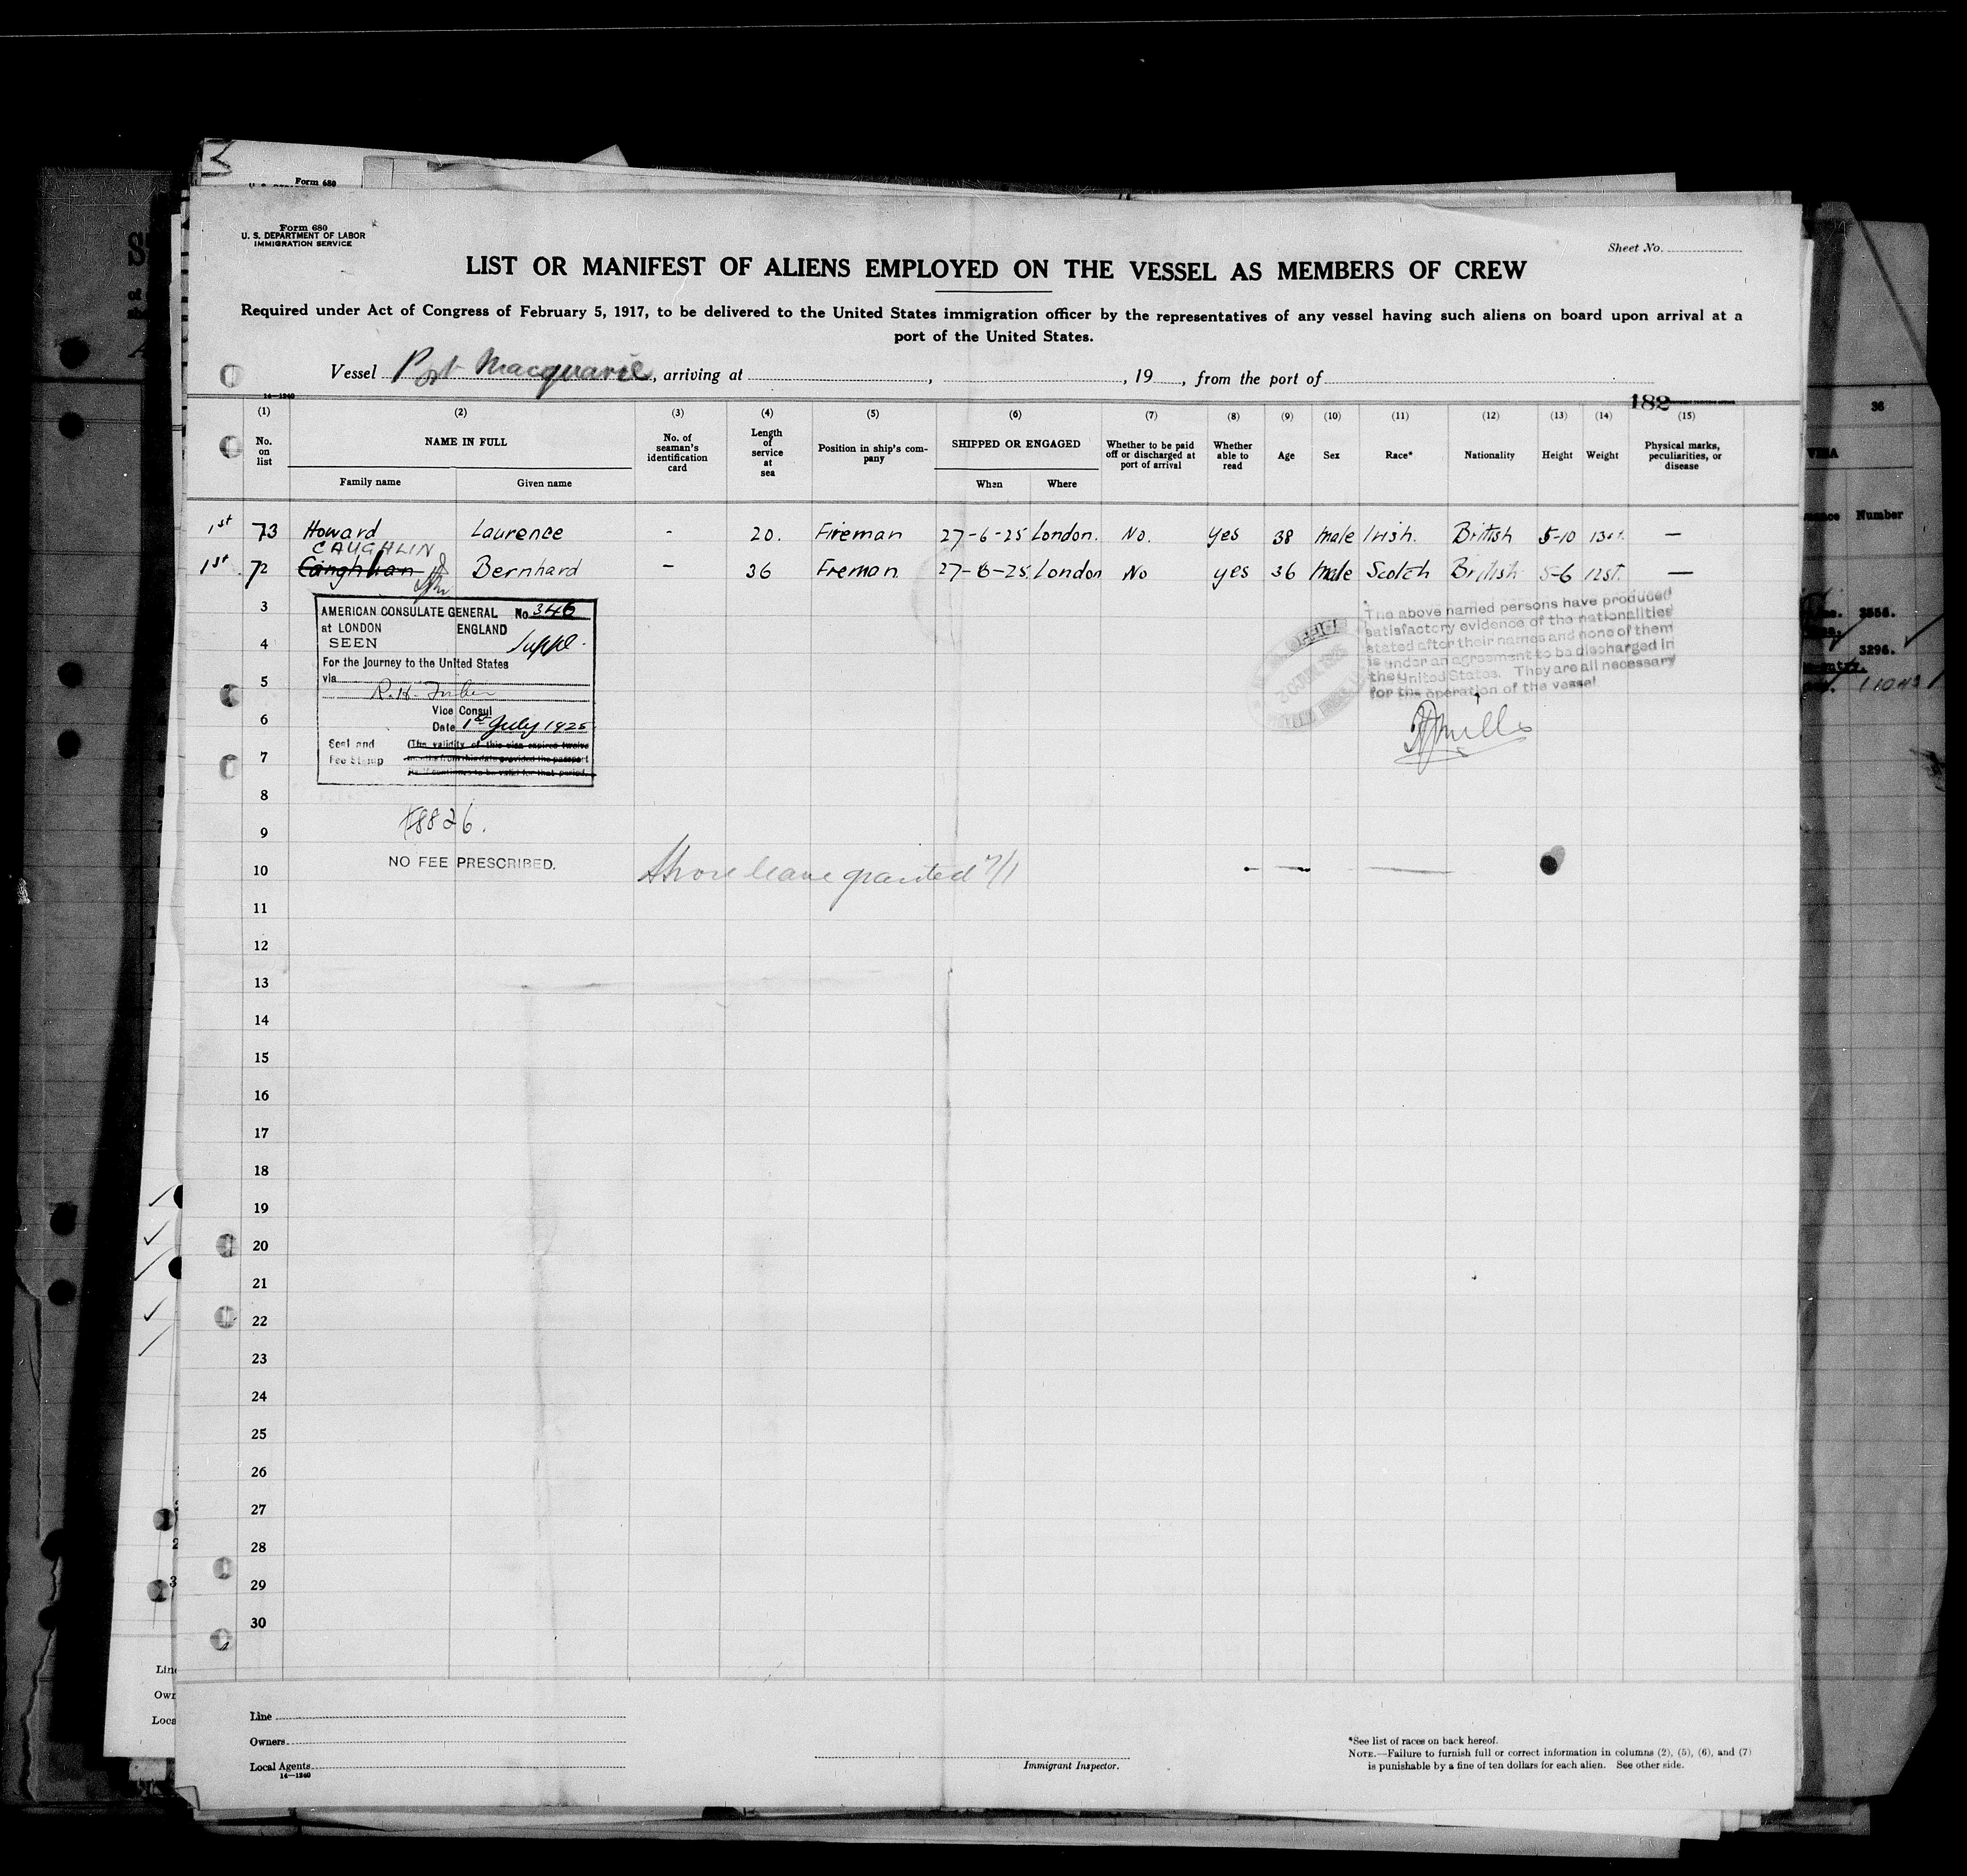 Form 680
Form 680
U. S. DEPARTMENT OF LABOR
IMMIGRATION SERVICE
Sheet No.
LIST OR MANIFEST OF ALIENS EMPLOYED ON THE VESSEL AS MEMBERS OF CREW
Required under Act of Congress of February 5, 1917, to be delivered to the United States immigration officer by the representatives of any vessel having such aliens on board upon arrival at a
port of the United States.
Vessel Port Macquarie, arriving at , , 19 , from the port of
14—1240
182
(1) (2) (3) (4) (5) (6) (7) (8) (9) (10) (11) (12) (13) (14) (15)
No. on list NAME IN FULL Family name Given name No. of seaman's identification card Length of service at sea Position in ship's company SHIPPED OR ENGAGED When Where Whether to be paid off or discharged at port of arrival Whether able to read Age Sex Race* Nationality Height Weight Physical marks, peculiarities, or disease
1st 73 Howard Laurence - 20. Fireman 27-6-25 London. No. yes 38 Male Irish. British 5-10 13st. —
CAUGHLIN
1st 72 Caughlan Bernhard - 36 Freman 27-6-25 London No yes 36 Male Scotch British 5-6 12st. —
3
4
5
6
7
8
9
10
11
12
13
14
15
16
17
18
19
20
21
22
23
24
25
26
27
28
29
30
AMERICAN CONSULATE GENERAL No. 346
at LONDON ENGLAND
SEEN Suppl.
For the Journey to the United States
via
Vice Consul
Date 1st July 1925
Seal and (The validity of this visa expires twelve
Fee Stamp months from this date provided the passport
is if continues to be valid for that period.
8826.
NO FEE PRESCRIBED.
Shore leave granted 7/1
The above named persons have produced
satisfactory evidence of the nationalities
stated after their names and none of them
is under an agreement to be discharged in
the United States. They are all necessary
for the operation of the vessel
OFFICE
Line
Owners
Local Agents
14—1240
Immigrant Inspector.
*See list of races on back hereof.
NOTE.—Failure to furnish full or correct information in columns (2), (5), (6), and (7)
is punishable by a fine of ten dollars for each alien. See other side.
36
VISA
Number
3556.
3296.